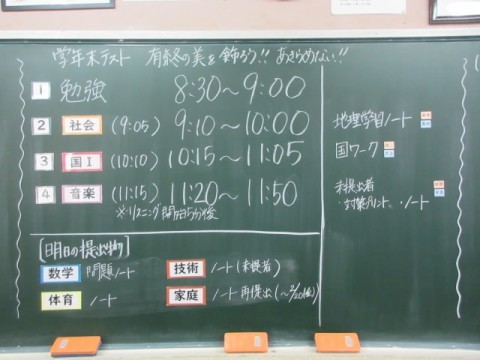 学年末テスト 有終の美を飾ろう!! あきらめない!!
1 勉強 8:30～9:00
2 社会 (9:05) 9:10～10:00
3 国Ⅰ (10:10) 10:15～11:05
4 音楽 (11:15) 11:20～11:50
※リスニング開始5分後
地理学習ノート
国ワーク
未提出者
・対策プリント、・ノート
[明日の提出物]
数学 問題ノート
技術 ノート(未提出者)
体育 ノート
家庭 ノート再提出(～2/20(金))